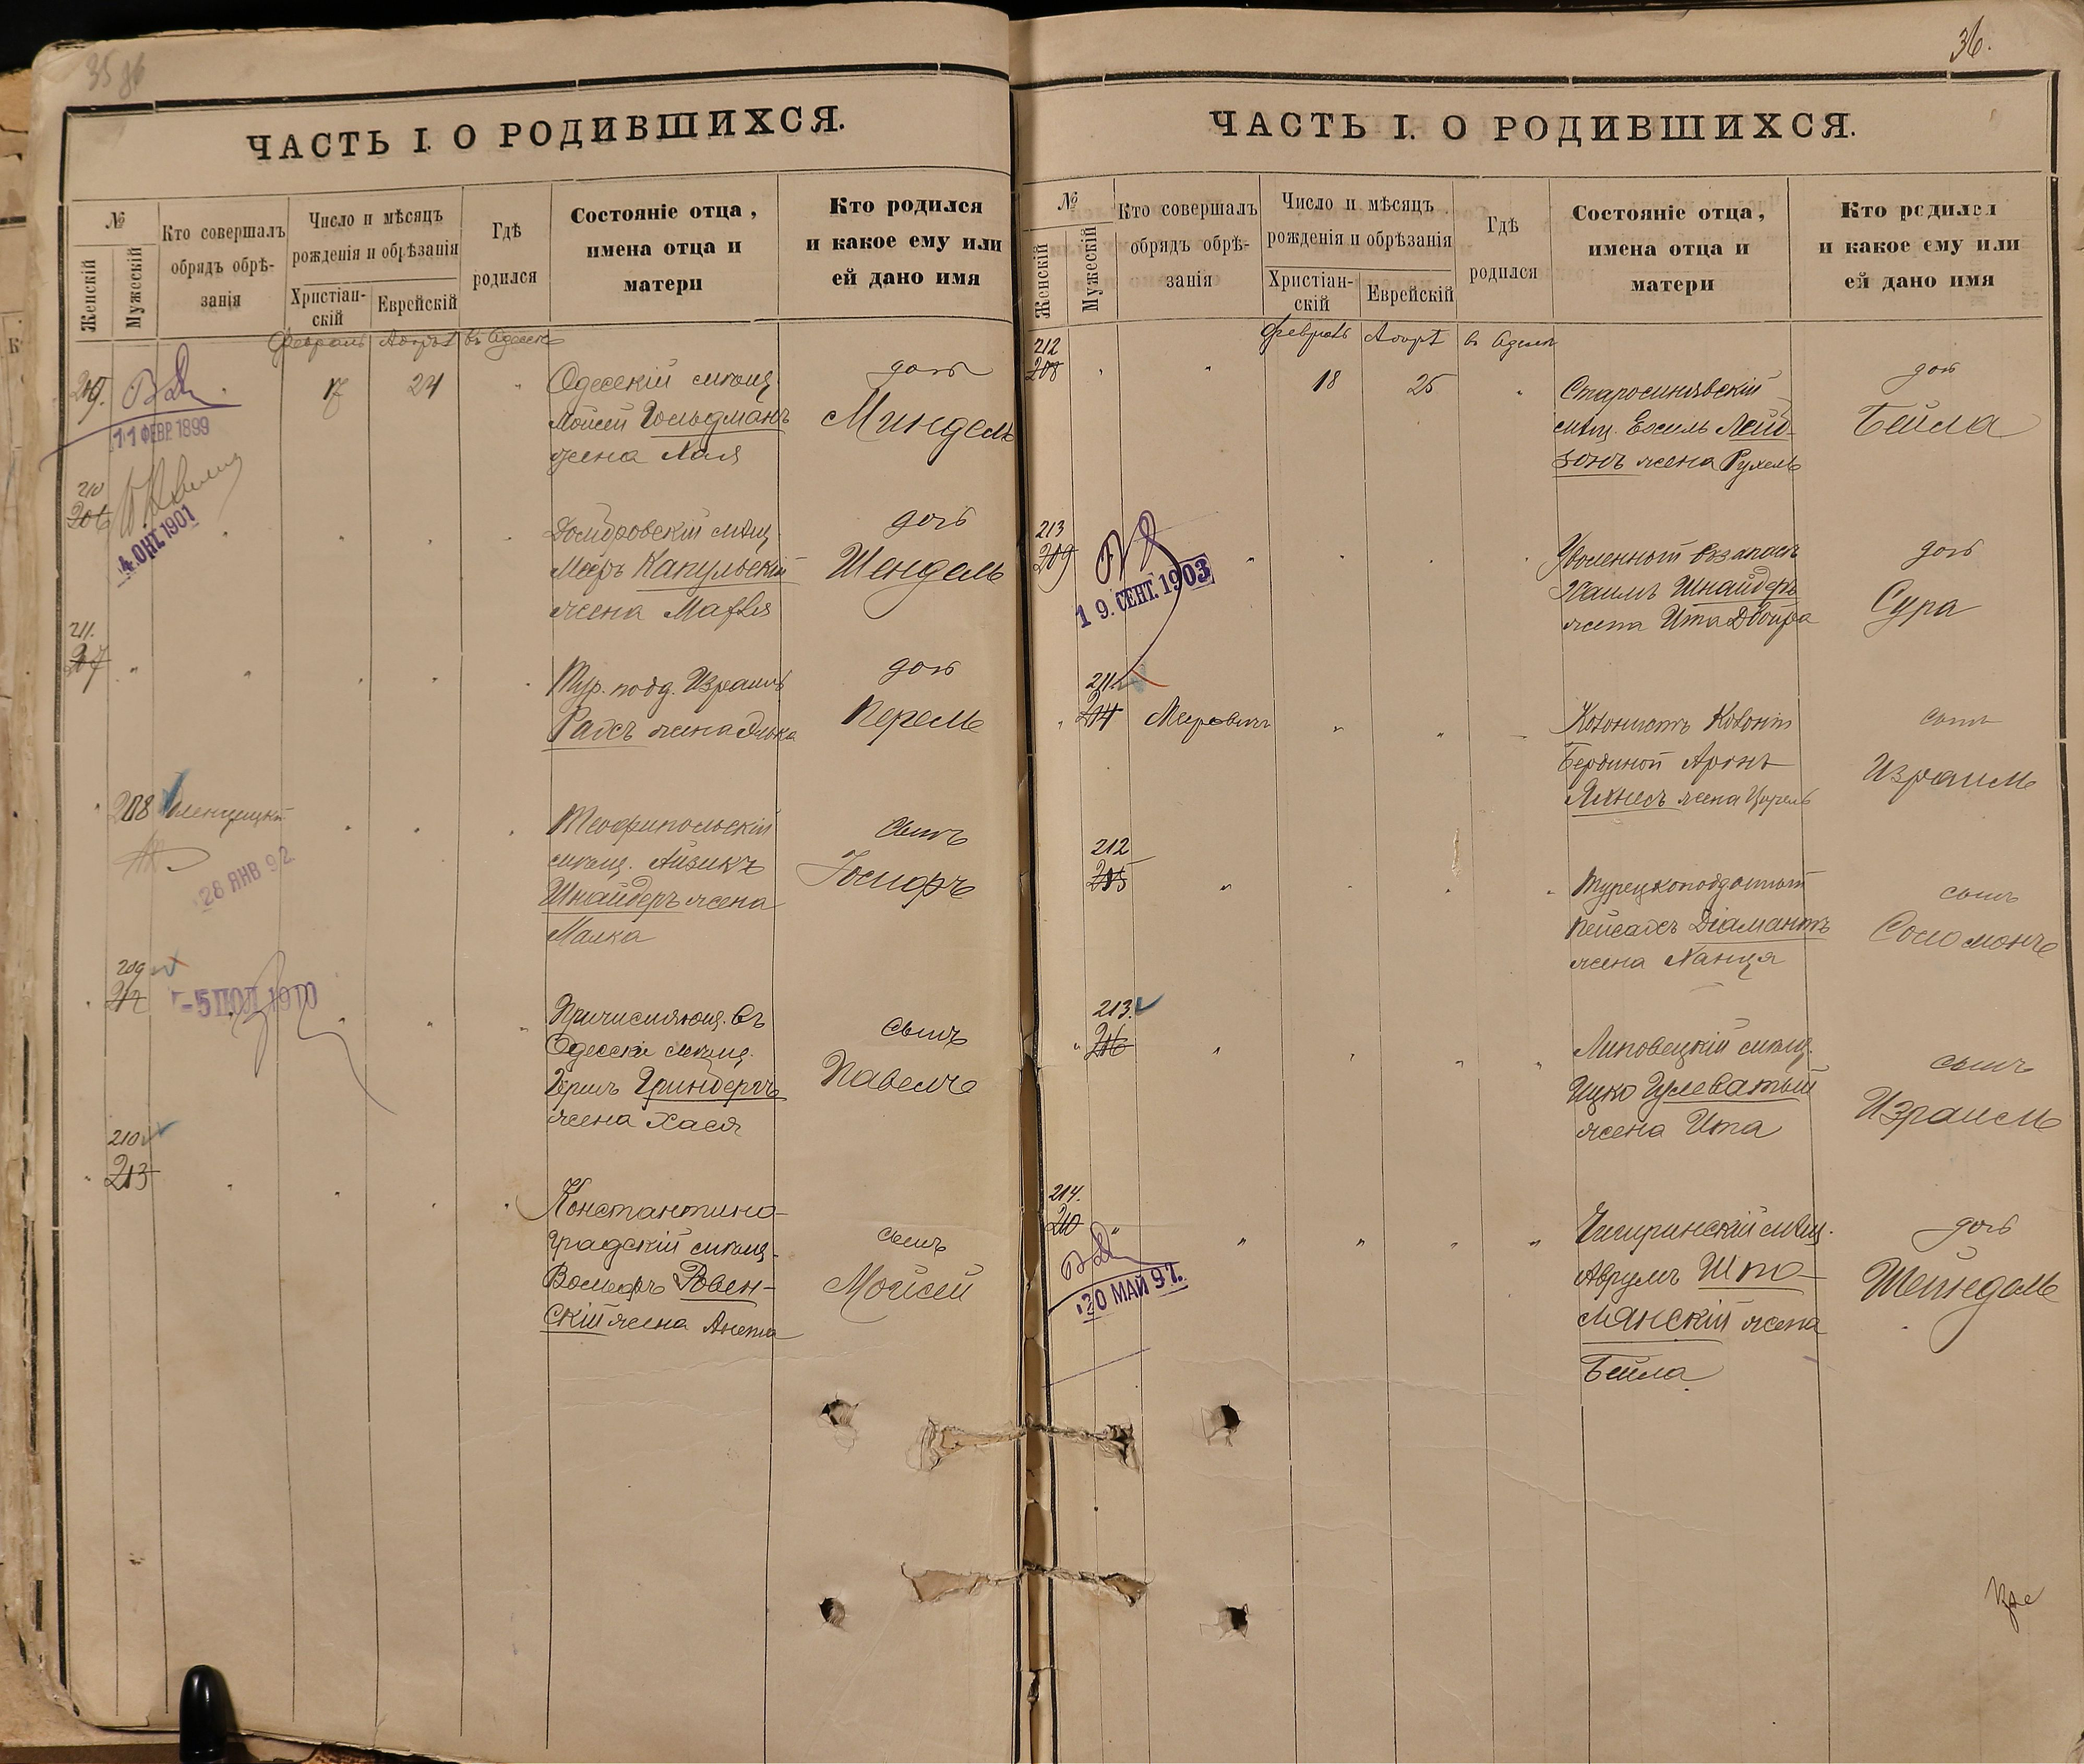 35
36.
ЧАСТЬ I. О РОДИВШИХСЯ.
№
Женскій
Мужескій
Кто совершалъ
обрядъ обрѣ-
занія
Число и мѣсяцъ
рожденія и обрѣзанія
Христіан-
скій
Еврейскій
Гдѣ
родился
Состояніе отца,
имена отца и
матери
Кто родился
и какое ему или
ей дано имя
Февраль Адаръ I въ Одессѣ
209.
11 ФЕВР 1899
17 24 " Одесскій мѣщ.
Мойсей Гольдманъ
жена Хая
дочь
Миндель
210
206
4. ОКТ. 1901
Домбровскій мѣщ.
Мееръ Капульскій
жена
дочь
Шендель
211.
207
Тур. подд. Израиль
Райсъ жена
дочь
Перель
208
28 ЯНВ 92
Теофипольскій
мѣщ. Айзикъ
Шнайдеръ жена
Малка
сынъ
Іосифъ
209
212
-5 ІЮЛ 1910
Причисляющ. въ
Одесскіе мѣщ.
Гершъ Гринбергъ
жена Хася
сынъ
Павелъ
210
213
Константино-
градскій мѣщ.
Вольфъ Ровен-
скій жена Анета
сынъ
Мойсей
ЧАСТЬ I. О РОДИВШИХСЯ.
№
Женскій
Мужескій
Кто совершалъ
обрядъ обрѣ-
занія
Число и мѣсяцъ
рожденія и обрѣзанія
Христіан-
скій
Еврейскій
Гдѣ
родился
Состояніе отца,
имена отца и
матери
Кто родился
и какое ему или
ей дано имя
Февраль Адаръ I въ Одессѣ
212
208
18 25 " Старосинявскій
мѣщ. Ехиль Лейб-
зонъ жена Рухель
дочь
Бейла
213
209
19. СЕНТ. 1903
Уволенный въ запасъ
Хаимъ Шнайдеръ
жена Ита Двойра
дочь
Сура
211
214 Мееровичъ
Колонистъ Колоніи
Аронъ
Яхнесъ жена Цирель
сынъ
Израиль
212
215
Турецкоподданный
Пейсахъ Діамантъ
жена Ханця
сынъ
Соломонъ
213.
216
Липовецкій мѣщ.
Ицко Гулеватый
жена Ита
сынъ
Израиль
214.
210
20 МАЙ 97.
Чигиринскій мѣщ.
Аврумъ Шпо-
лянскій жена
Бейла
дочь
Шейндель